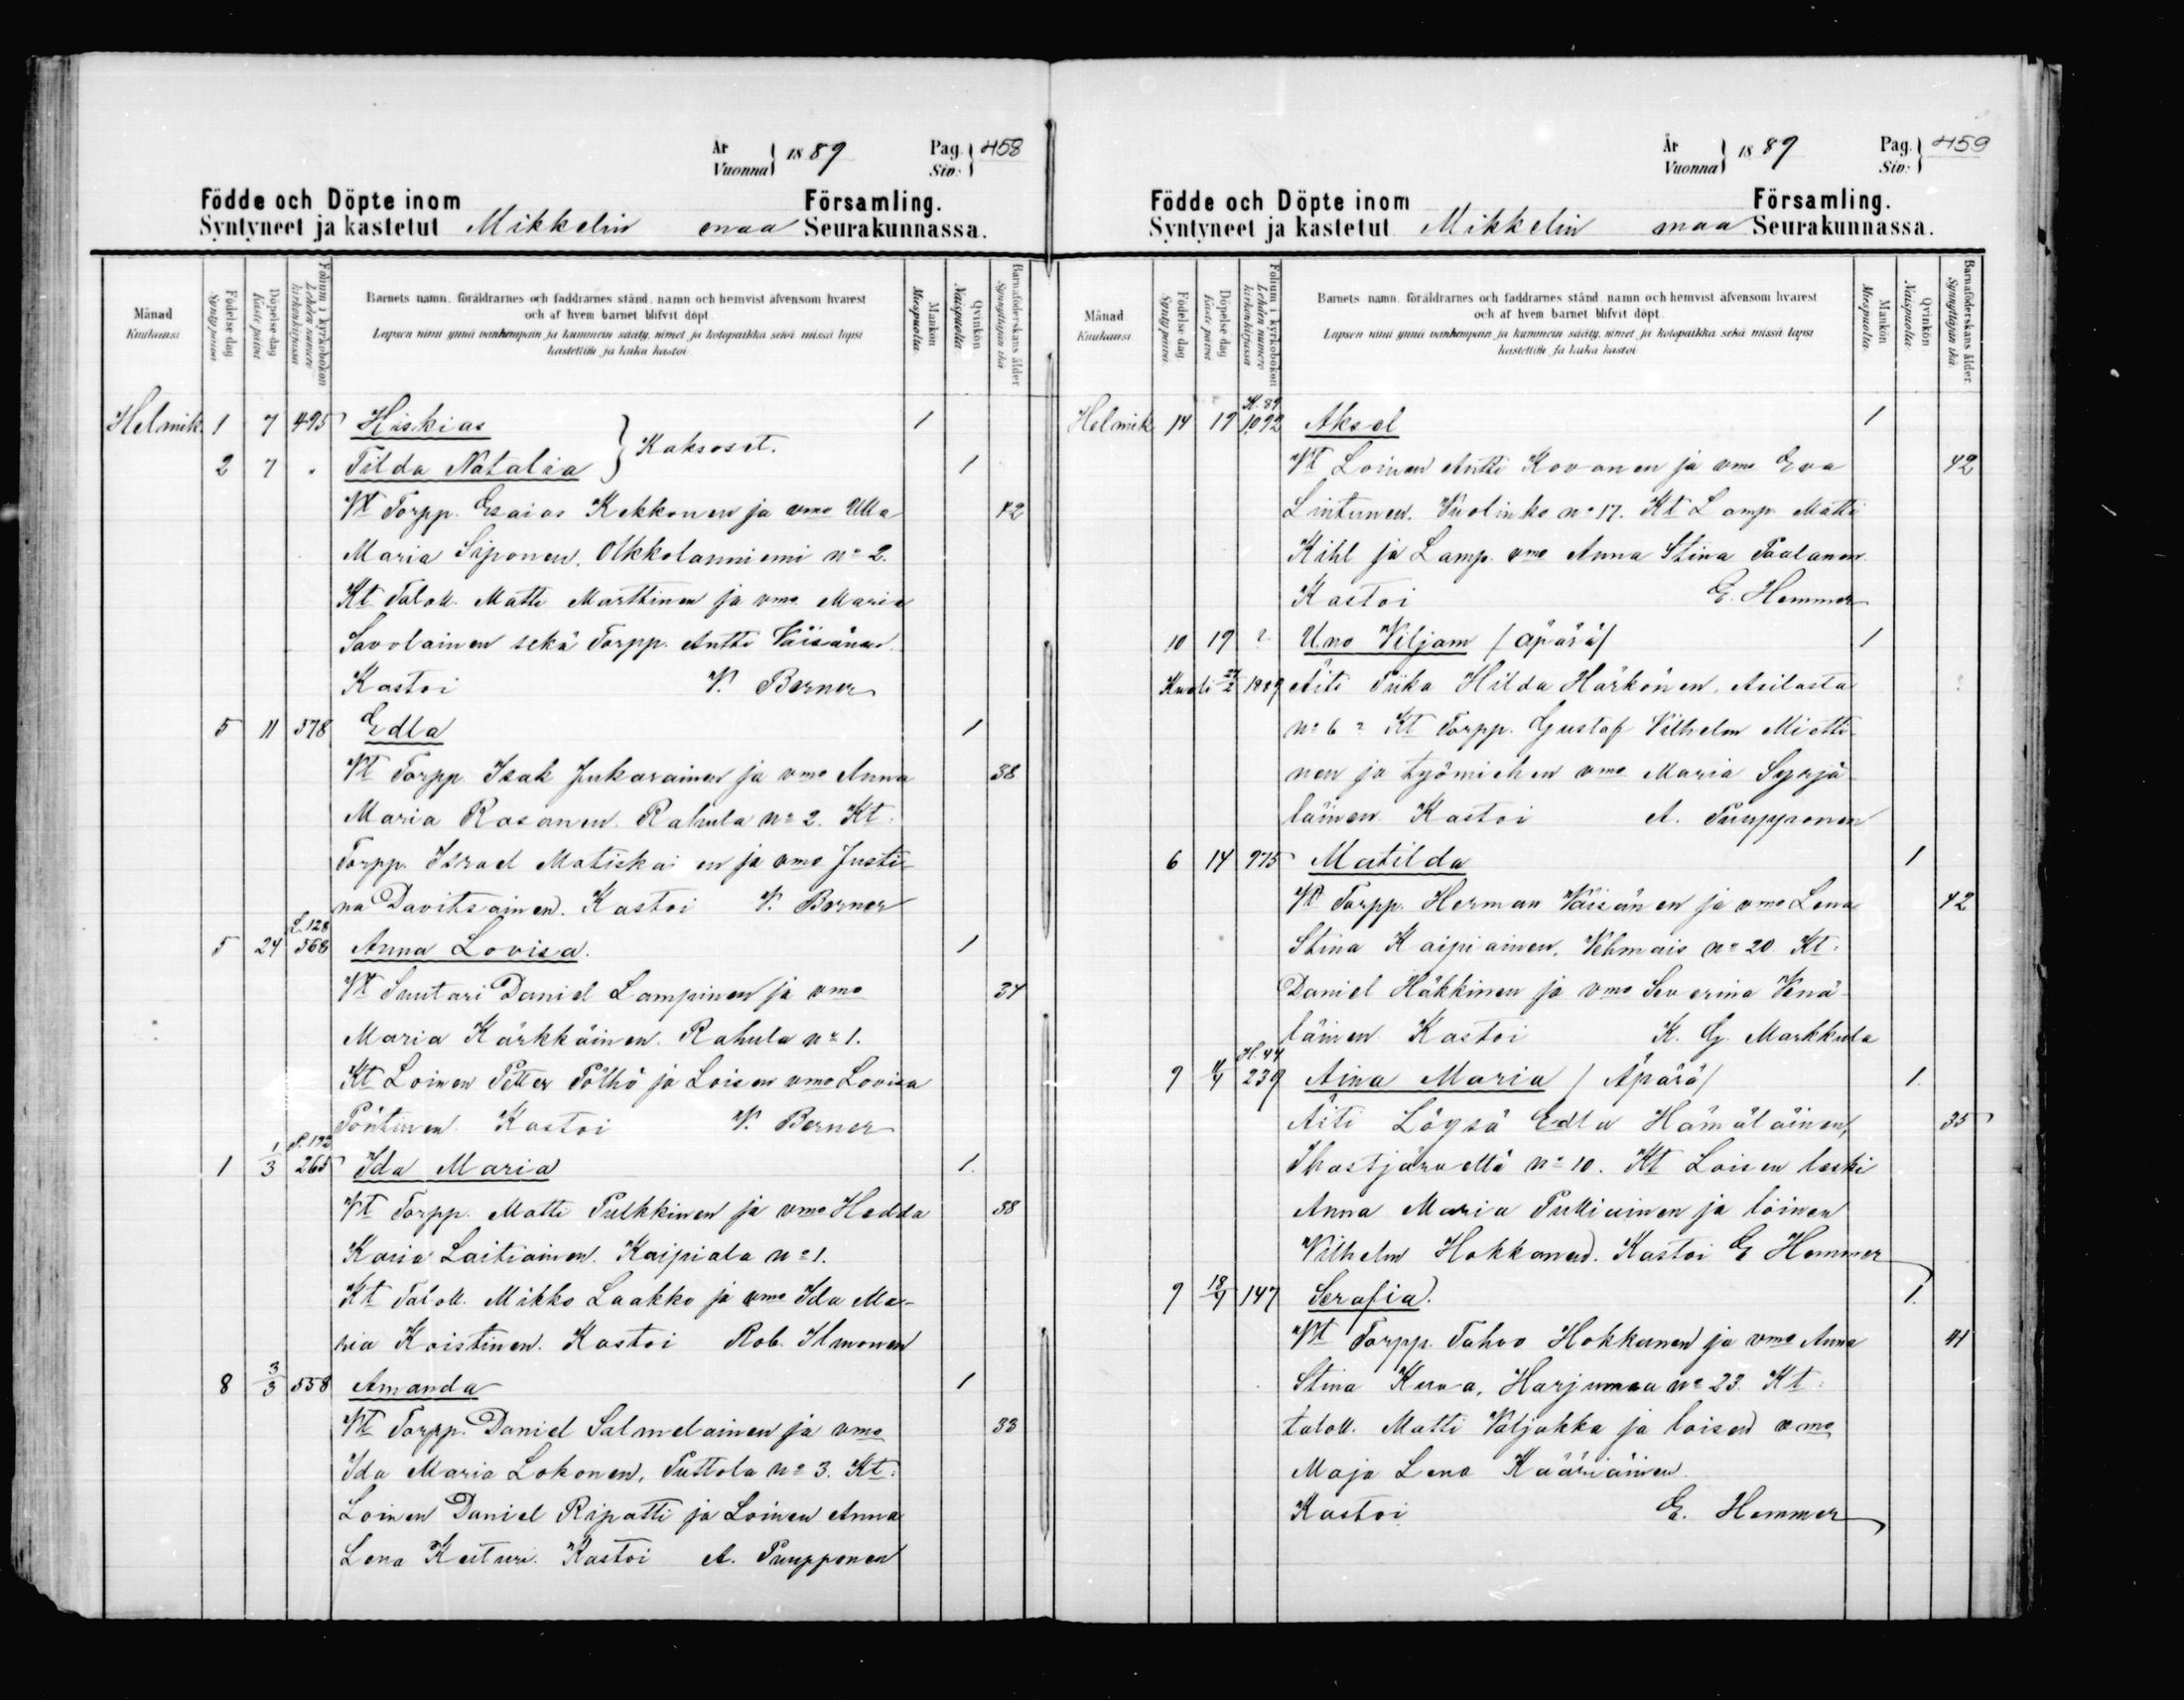 År
Vuonna } 1889 Pag.
Siv: } 458
Födde och Döpte inom Församling.
Syntyneet ja kastetut Mikkelin maa Seurakunnassa.
Månad
Kuukausi
Födelse dag
Synty päivä.
Döpelse dag
Kaste päivä
Folium i kyrkoboken
Lehden numero
kirkonkirjassa
Barnets namn, föräldrarnes och faddrarnes stånd, namn och hemvist äfvensom hvarest
och af hvem barnet blifvit döpt.
Lapsen nimi ynnä vanhempain ja kummein sääty, nimet ja kotopaikka sekä missä lapsi
kastettiin ja kuka kastoi
Mankön
Miespuolia.
Qvinkön
Naispuolia.
Barnaföderskans ålder
Synnyttäjän ikä
Helmik. 1 7 495 Hiskias 1
2 7 „ Tilda Natalia } Kaksoset. 1
Vt Torpp. Esaias Kekkonen ja vmo Ulla 42
Maria Siponen. Olkkolanniemi no 2.
Kt Taloll. Matti Marttinen ja vmo Maria
Savolainen sekä Torpp. Antti Väisänen.
Kastoi V. Berner
5 11 578 Edla 1
Vt Torpp. Isak Jukarainen ja vmo Anna 38
Maria Rasanen. Rahula no 2. Kt.
Torpp. Israel Matiskai en ja vmo Justi-
na Davitsainen. Kastoi V. Berner
L. 128
5 24 568 Anna Lovisa. 1
Vt Suutari Daniel Lampinen ja vmo 34
Maria Kärkkäinen. Rahula no 1.
Kt Loinen Petter Pöthö ja Loisen vmo Lovisa
Pöntinen. Kastoi V. Berner
P. 192
1 1/3 265 Ida Maria 1.
Vt Torpp. Matti Pulkkinen ja vmo Hedda 38
Karia Laitiainen. Kaipiala no 1.
Kt Taloll. Mikko Laakko ja vmo Ida Ma-
ria Koistinen. Kastoi Rob. Ilmonen
8 3/3 558 Amanda 1
Vt Torpp. Daniel Salmelainen ja vmo 33
Ida Maria Lokonen, Tuttola no 3. Kt.
Loinen Daniel Ripatti ja Loinen Anna
Lena Kusturi. Kastoi A. Puupponen
År
Vuonna } 1889 Pag.
Siv: } 459
Födde och Döpte inom Församling.
Syntyneet ja kastetut Mikkelin maa Seurakunnassa.
Månad
Kuukausi
Födelse dag
Synty päivä.
Döpelse dag
Kaste päivä
Folium i kyrkoboken
Lehden numero
kirkonkirjassa
Barnets namn, föräldrarnes och faddrarnes stånd, namn och hemvist äfvensom hvarest
och af hvem barnet blifvit döpt.
Lapsen nimi ynnä vanhempain ja kummein sääty, nimet ja kotopaikka sekä missä lapsi
kastettiin ja kuka kastoi
Mankön
Miespuolia.
Qvinkön
Naispuolia.
Barnaföderskans ålder.
Synnyttäjän ikä.
K. 89
Helmik 14 19 1092 Aksel 1
Vt Loinen Antti Kovanen ja vmo Eva 42
Lintunen. Vuolinko no 17. Kt Lamp. Matti
Kihl ja Lamp. vmo Anna Stina Paalanen.
Kastoi E. Hemmer
10 19 ? Uno Viljam / äpärä / 1
Kuoli 24/2 1889 Äiti Piika Hilda Härkönen. Asilasta
no 6 ? Kt Torpp. Gustaf Vilhelm Mietti-
nen ja työmiehen vmo Maria Syrjä
läinen Kastoi A. Puupponen
6 14 975 Matilda 1
Vt Torpp. Herman Väisänen ja vmo Lena 42
Stina Kaipiainen. Vehmais no 20 Kt.
Daniel Häkkinen ja vmo Severina Venä-
läinen Kastoi K. G. Markkula
H. 44
9 11/4 239 Aina Maria / Äpärä / 1.
Äiti Löysä Edla Hämäläinen, 35
Ihastjärveltä no 10. Kt Loisen leski
Anna Maria Pulliainen ja loinen
Vilhelm Hokkanen. Kastoi E Hemmer
9 18/4 147 Serafia. 1.
Vt Torpp. Tahvo Hokkanen ja vmo Anna 41
Stina Kuva, Harjumaa no 23. Kt.
taloll. Matti Valjakka ja loisen vmo
Maja Lena Kääriäinen.
Kastoi E. Hemmer